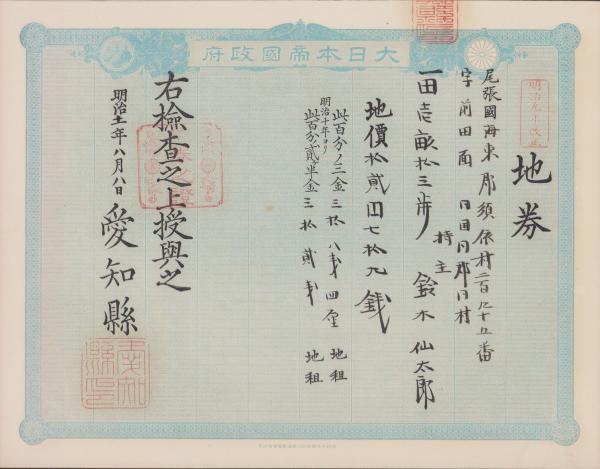 大日本帝國政府
明治九年改正
地券
尾張國海東郡須依村二百九十五番
字前田面 同国同郡同村
一田壱畝拾三歩 持主 鈴木仙太郎
地價拾貳円七拾九銭
此百分ノ三金三拾八銭四厘 地租
明治十年ヨリ
此百分ノ貳半金三拾貳銭 地租
右檢查之上授與之
明治十一年八月八日
愛知縣
愛知縣印